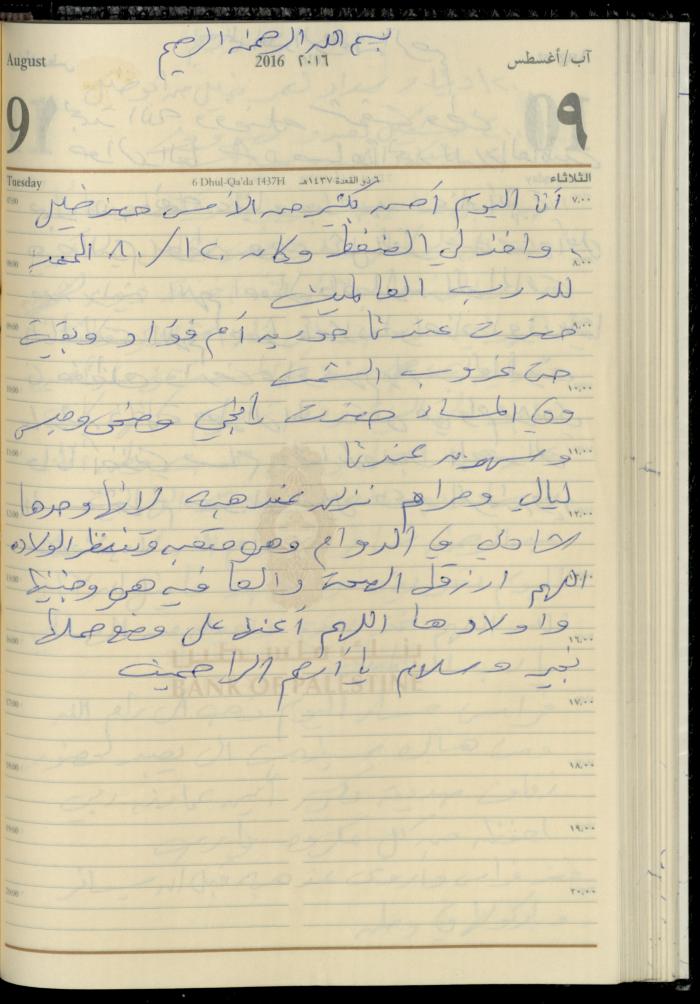 بسم الله الرحمن الرحيم
August 2016 ٢٠١٦ آب/أغسطس
9 ٩
Tuesday 6 Dhul-Qa'da 1437H ٦ ذو القعدة ١٤٣٧هـ الثلاثاء
أنا اليوم أحسن بكثير من الأمس حضر خليل
واخذ لي الضغط وكان ١٢٠/٨٠ الحمد
لله رب العالمين
حضرت عندنا حورية أم فؤاد وبقية
حتى غروب الشمس
وفي المساء حضرت وضحى
وسهرو عندنا
ليالي ومرام نزلو عند هبه لانها وحدها
شادي في الدوام وهي متعبه وتنتظر الولاده
اللهم ارزقها الصحة والعافيه هي وجنينها
واولادها اللهم أعنها على وضع حملها
بخير وسلام يا أرحم الراحمين
بنك فلسطين
BANK OF PALESTINE